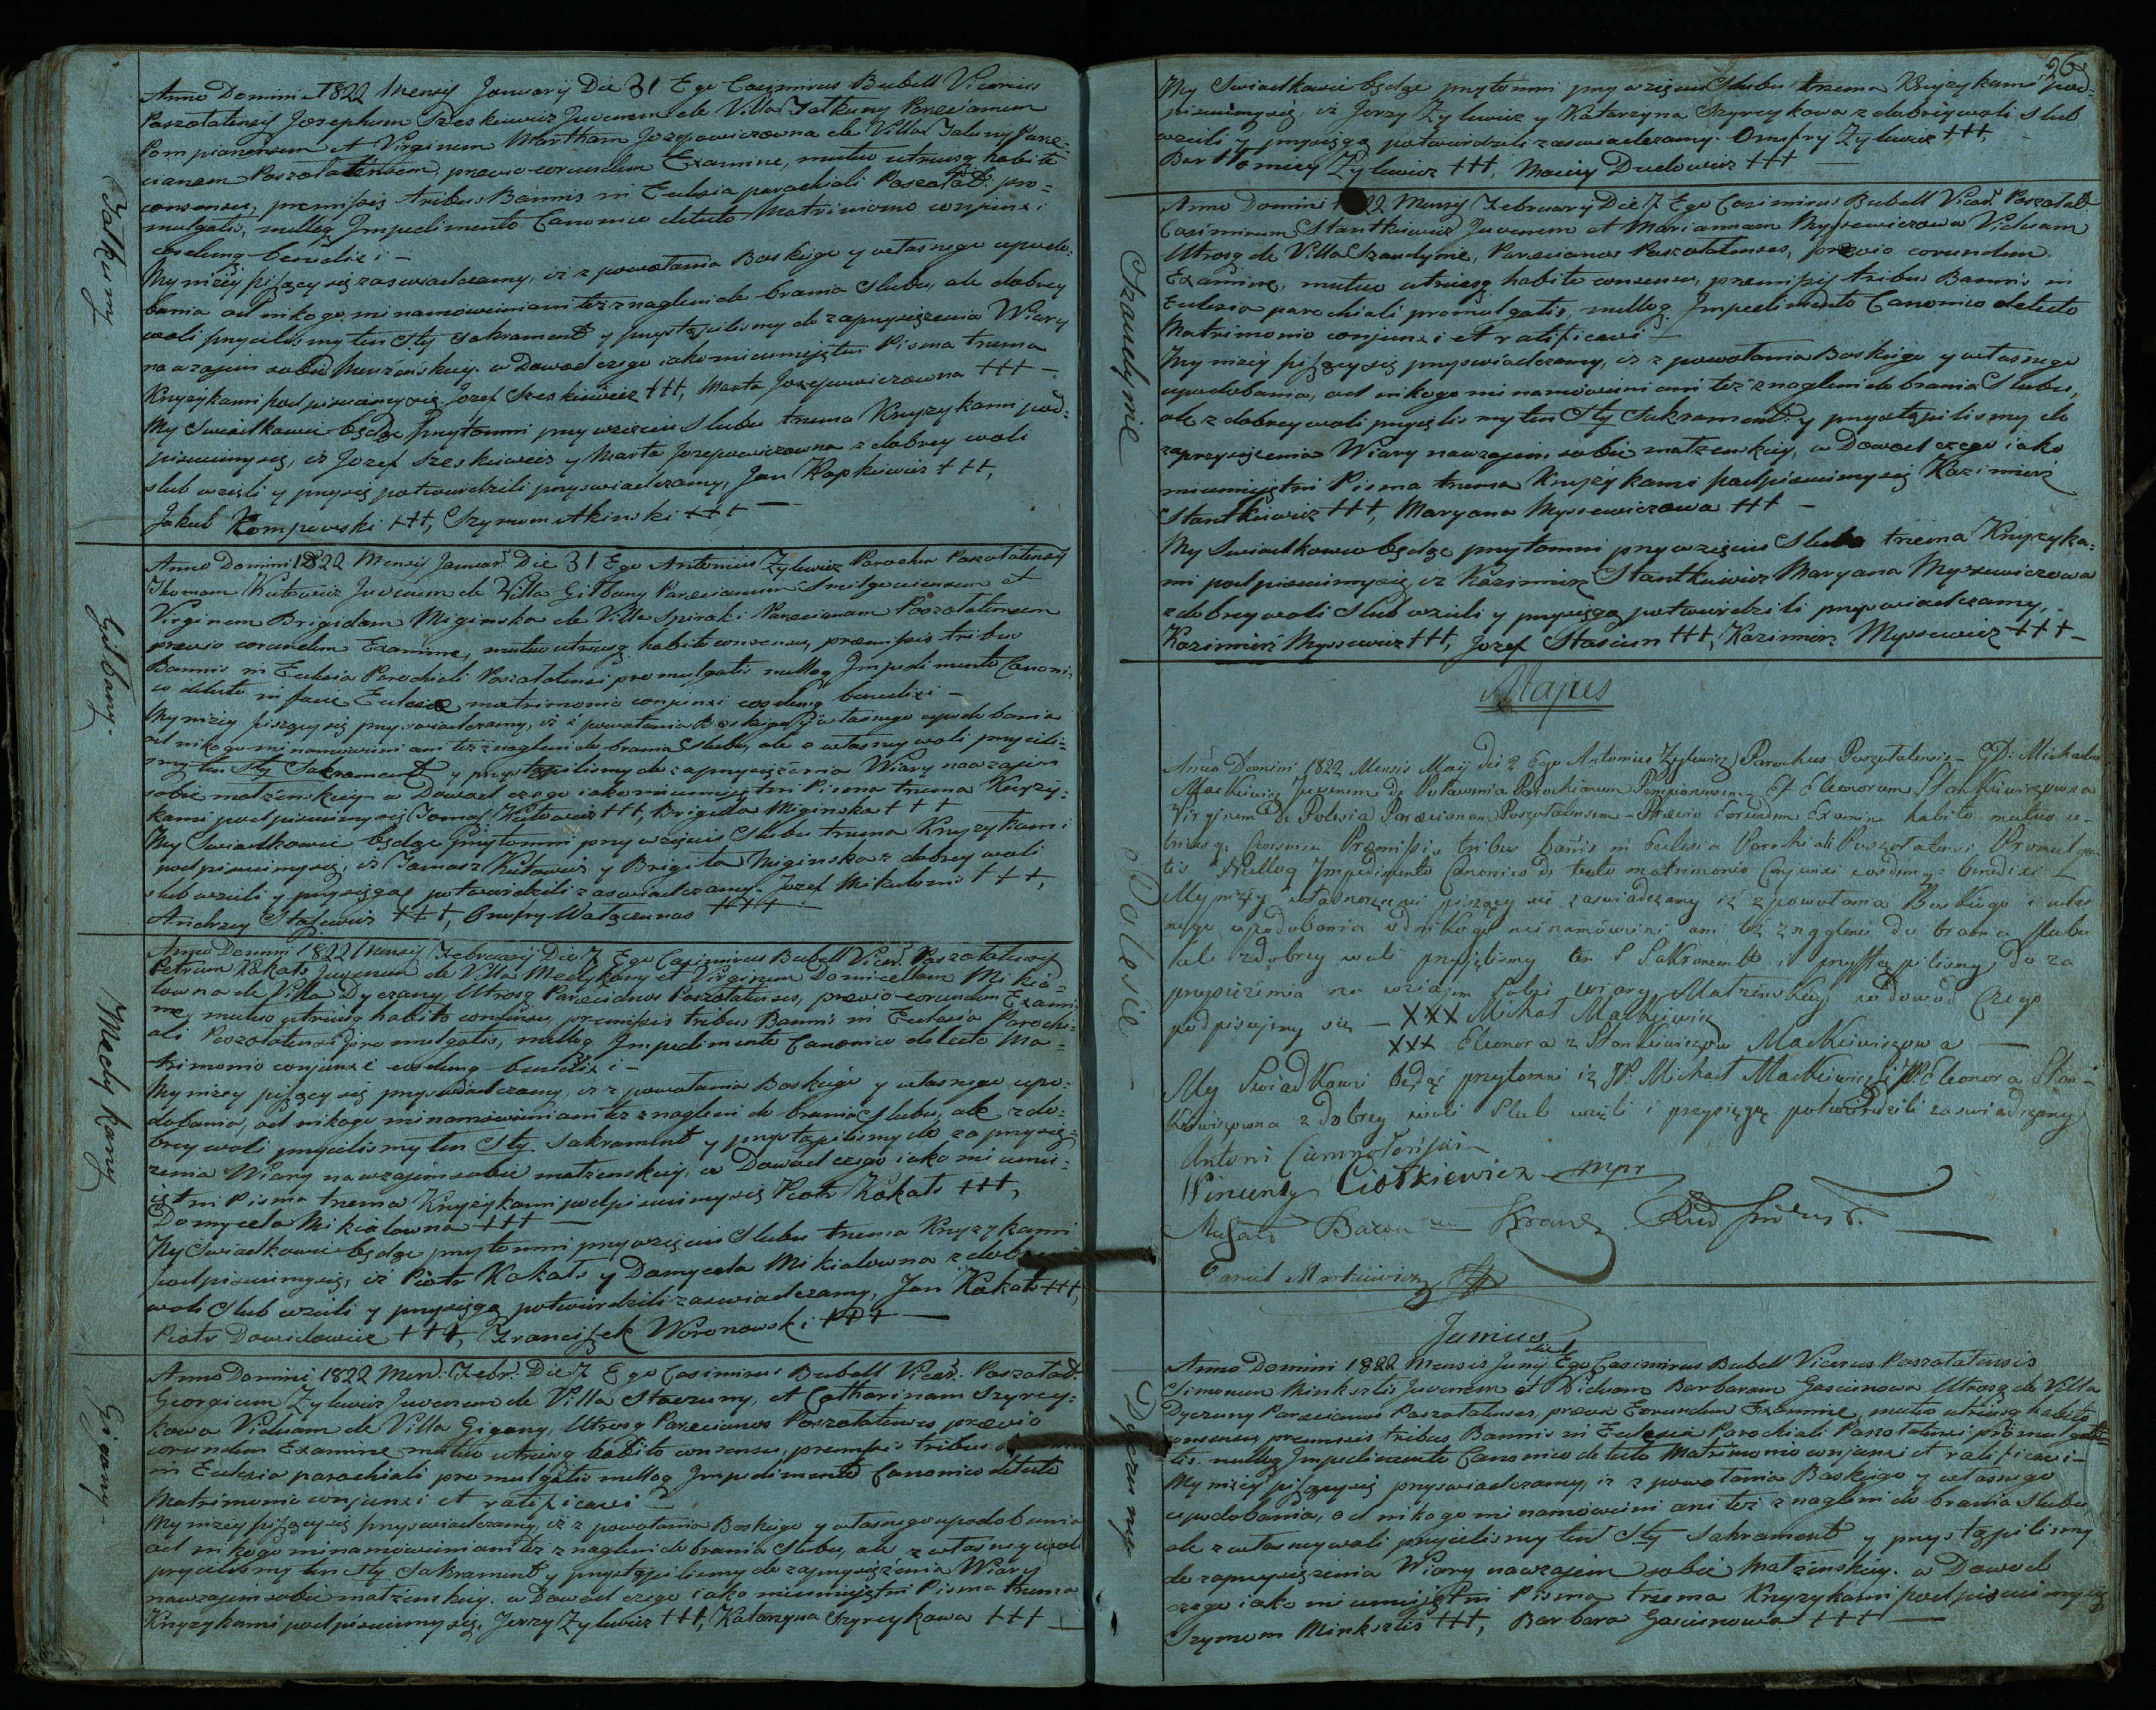 Jatkuny.
Anno Domini 1822 Mensis January Die 31 Ego Casimirus Bubell Vicarius
Poszołatensis Josephum Szeskiewicz Juvenem de Villa Jatkuny Paræcianum
Pompianensem et Virginem Martham Jozepowiczowna de Villa Paræ=
cianam Poszołatensem, prævio eorundem Examine, mutuo utriusq habito
consensu, præmissis tribus Bannis in Eclesia parochiali Poszołat: pro=
mulgatis, nulloq Impedimento Canonico detecto Matrimonio conjunxi
eosdemq benedixi —
My niżey piszący się zaswiadczamy, iż z powołania Boskiego y własnego upodo=
bania od nikogo nienamówieni ani też znagleni do brania Slubu, ale dobrey
woli przyieliśmy ten Sty Sakrament y przystąpiliśmy do zaprzysiężenia Wiary
na wzajem sobie Menżeńskiey. w Dowod czego iako nieumiejętni Pisma trzema
Krzyzykami podpisuiemy się Jozef Szeskiewicz +++, Marta Jozepowiczowna +++ —
My Swiadkowie będąc przytomni przy wzięciu Slubu trzema Krzyzykami pod=
pisuiemy się, iż Jozef Szeskiewicz y Marta Jozepowiczowna z dobrey woli
slub wzięli y przysięgą potwierdzili przyswiadczamy, Jan Kopkiewicz +++,
Jakub Kompowski +++, Szymon Akinski +++ —
Gitbany.
Anno Domini 1822 Mensis Januar: Die 31 Ego Antonius Zylewicz Parochus Poszołatensis
Thomam Kutowicz Juvenem de Villa Gitbany Paræcianum Smilgoviensem et
Virginem Brigidam Miginska de Villa Spiraki Paræcianam Poszołatensem
prævio eorundem Examine, mutuo utriusq habito consensu, præmissis tribus
Bannis in Eclesia Parochiali Poszołatensi promulgatis nulloq Impedimento Canoni=
co detecto in facie Eclesiæ matrimonio conjunxi eosdemq benedixi —
My niżey piszący się przyswiadczamy, iż z powołania Boskiego y własnego upodobania
od nikogo nienamówieni ani też znagleni do brania Slubu, ale z własney woli przyieli=
smy ten Sty Sakrament y przystąpiliśmy do zaprzysiężenia Wiary nawzajem
sobie matżenskiey w Dowod czego iako nieumiejętni Pisma trzema Krzyzy=
kami podpisuiemy się Tomasz Kutowicz +++, Brigida Miginska +++
My Swiadkowie będąc przytomni przy wzięciu Slubu trzema Krzyzykami
podpisuiemy się, iż Tomasz Kutowicz y Brigita Miginska z dobrey woli
slub wzieli y przysięgą potwierdzili zaswiadczamy. Jozef Mitadomis +++,
Andrzey Stasewicz +++, Onufry Watęczunas +++ —
Medykany
Anno Domini 1822 Mensis February Die 7 Ego Casimirus Bubell Vicar: Poszołatensis
Petrum Kakats Juvenem de Villa Medykany et Virginem Domicellam Mikia=
lowna de Villa Dyczany, Utrosq Paræcianos Poszołatenses, prævio eorundem Exami=
ne, mutuo utriusq habito consensu, præmissis tribus Bannis in Eclesia Parochi=
ali Poszołatensi promulgatis, nulloq Impedimento Canonico detecto Ma=
trimonio conjunxi eosdemq benedixi —
My niżey piszący się przyswiadczamy, iż z powołania Boskiego y własnego upo=
dobania, od nikogo nienamówieni ani też znagleni do brania Slubu, ale z do=
brey woli przyieliśmy ten Sty Sakrament y przystąpiliśmy do zaprzysię=
żenia Wiary nawzajem sobie matżenskiey, w Dowod czego iako nieumie=
iętni Pisma trzema Krzyżykami podpisuiemy się Piotr Kakats +++,
Domycela Mikialowna +++ —
My Swiadkowie będąc przytomni przy wzięciu Slubu trzema Krzyzykami
podpisuiemy się, iż Piotr Kakats y Domycela Mikialowna z dobrey
woli Slub wzieli y przysięgą potwierdzili zaswiadczamy, Jan Kakats +++,
Piotr Dawidowicz +++, Franciszek Woronowski +++ —
Gigany —
Anno Domini 1822 Men: Febr: Die 7 Ego Casimirus Bubell Vicar: Poszołat:
Georgium Zylewicz Juvenem de Villa Staczuny, et Catharinam Szyrey=
kowa Viduam de Villa Gigany, Utrosq Paræcianos Poszołatenses prævio
eorundem Examine mutuo utriusq habito consensu, præmissis tribus
in Eclesia parochiali promulgatis nulloq Impedimento Canonico detecto
Matrimonio conjunxi et ratificavi —
My niżey piszący się przyswiadczamy, iż z powołania Boskiego y własnego upodobania
od nikogo nienamówieni ani też znagleni do brania Slubu, ale z własney woli
przyieliśmy ten Sty Sakrament y przystąpiliśmy do zaprzysiężenia Wiary
nawzajem sobie matżenskiey. w Dowod czego iako nieumiejętni Pisma trzema
Krzyzykami podpisuiemy się, Jerzy Zylewicz +++, Katarzyna Szyreykowa +++ —
26
My Swiadkowie będąc przytomni przy wzięciu Slubu trzema Krzyzykami pod=
pisuiemy się, iż Jerzy Zylewicz y Katarzyna Szyreykowa z dobrey woli Slub
wzieli y przysięgą potwierdzili zaswiadczamy. Onufry Zylewicz +++,
Bartłomiey Zylewicz +++, Maciey Dudowicz +++ —
Szaudynie
Anno Domini 1822 Mensis February Die 7 Ego Casimirus Bubell Vicar: Poszołat:
Casimirum Stantkiewicz Juvenem et Mariannam Myssewiczowa Viduam
Utrosq de Villa Szaudynie, Paræcianos Poszołatenses, prævio eorundem
Examine, mutuo utriusq habito consensu, præmissis tribus Bannis in
Eclesia parochiali promulgatis, nulloq Impedimento Canonico detecto
Matrimonio conjunxi et ratificavi —
My niżey piszący się przyswiadczamy, iż z powołania Boskiego y własnego
upodobania, od nikogo nienamówieni ani też znagleni do brania Slubu,
ale z dobrey woli przyięliśmy ten Sty Sakrament y przystąpiliśmy do
zaprzysiężenia Wiary nawzajem sobie matżenskiey, w Dowod czego iako
nieumiejętni Pisma trzema Krzyżykami podpisuiemy się Kazimierz
Stantkiewicz +++, Maryana Myssewiczowa +++ —
My Swiadkowie będąc przytomni przy wzięciu Slubu trzema Krzyzyka=
mi podpisuiemy się iż Kazimierz Stantkiewicz Maryana Myssewiczowa
z dobrey woli Slub wzieli y przysięgą potwierdzili przyswiadczamy,
Kazimierz Myssewicz +++, Jozef Stasiun +++, Kazimierz Myssewicz +++ —
Majus
Polesie —
Anno Domini 1822 Mensis Maij die 2 Ego Antonius Zylewicz Parochus Poszołatensis — GD: Michaelem
Mackiewicz Juvenem de Parochianum Pompianensem — Et Eleonoram Stankiewiczowna
Virginem De Polesia Paræcianam Poszołatensem — Prævio Eorundem Examine habito mutuo u=
triusq: Consensu Præmissis tribus bannis in Eclesia Parochiali Poszołatensi Promulga=
tis Nulloq Impedimento Canonico de tecto matrimonio Conjunxi eosdemq: benedixi —
My niżey własnoręcznie piszący się zaswiadczamy iż z powołania Boskiego i włas
nego upodobania od nikogo nienamówieni ani też znagleni do brania slubu
lecz z dobrey woli przyięlismy ten S Sakrament i przystąpilismy do za
przysiężenia na wzaiem sobie wiary Matżenskiey w dowod Czego
podpisujemy się — XXX Michał Mackiewicz
XXX Eleonora z Stankiewiczow Mackiewiczowa —
My Swiadkowie będąc przytomni iż JP: Michał Mackiewicz i JP: Eleonora Stan=
kiewiczowna z dobrey woli Slub wzięli i przysięgą potwierdzili zaswiadczamy
Antoni
Wincenty Ciotkiewicz mpr
Michał Baron
Daniel Mackiewicz
Junius
Dyczuny
Anno Domini 1822 Mensis Juny die 1 Ego Casimirus Bubell Vicarius Poszołatensis
Simonem Minksztis Juvenem et Viduam Barbaram Gasciunowa Utrosq de Villa
Dyczuny Paræcianos Poszołatenses, prævio Eorundem Examine, mutuo utriusq habito
consensu præmissis tribus Bannis in Eclesia Parochiali Poszołatensi promulga=
tis. nulloq Impedimento Canonico detecto Matrimonio conjunxi et ratificavi —
My niżey piszący się przyswiadczamy, iż z powołania Boskiego y własnego
upodobania, od nikogo nienamówieni ani też znagleni do brania Slubu
ale z własney woli przyieliśmy ten Sty Sakrament y przystąpiliśmy
do zaprzysiężenia Wiary nawzajem sobie Matżenskiey. w Dowod
czego iako nieumiejętni Pisma trzema Krzyzykami podpisuiemy się
Szymon Minksztis +++, Barbara Gasciunowa +++ —